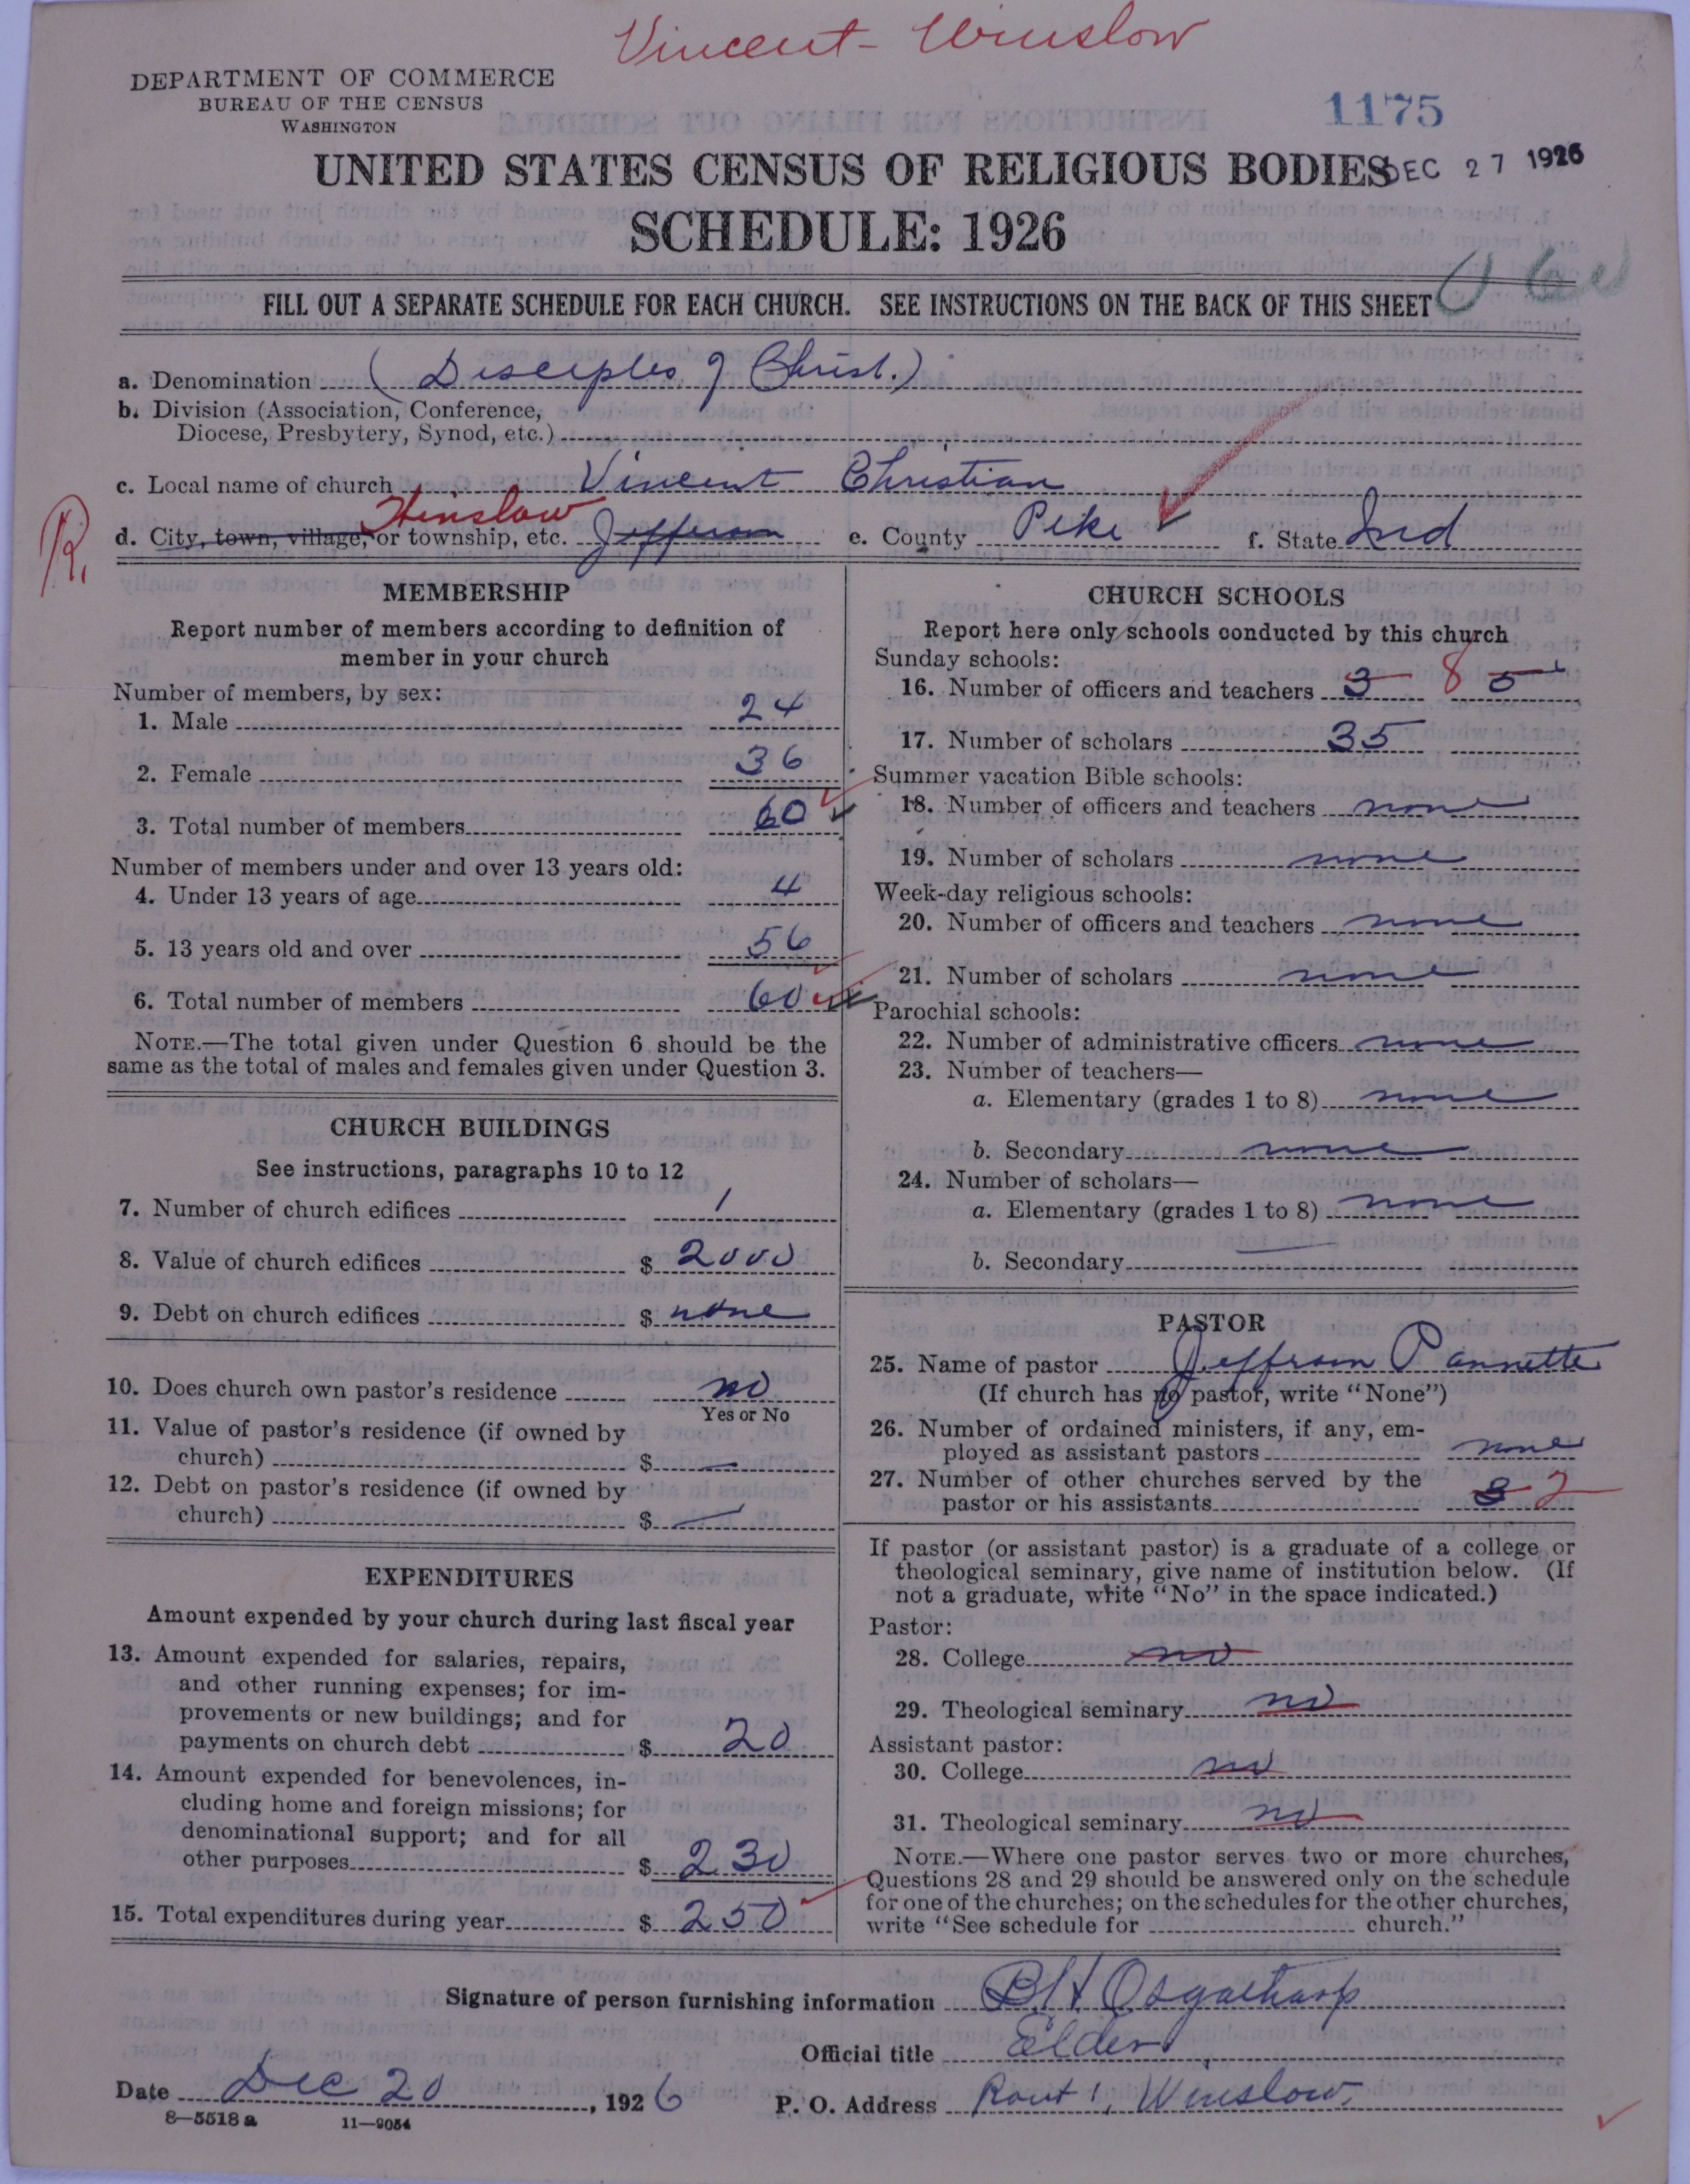 Vincent - Winslow
DEPARTMENT OF COMMERCE
BUREAU OF THE CENSUS
WASHINGTON
1175
UNITED STATES CENSUS OF RELIGIOUS BODIES
DEC 27 1926
SCHEDULE: 1926
FILL OUT A SEPARATE SCHEDULE FOR EACH CHURCH. SEE INSTRUCTIONS ON THE BACK OF THIS SHEET
a. Denomination (Disciples of Christ.)
b. Division (Association, Conference,
Diocese, Presbytery, Synod, etc.)
c. Local name of church Vincent Christian
Winslow
R.
d. City, town, village, or township, etc. Jefferson e. County Pike f. State Ind
MEMBERSHIP
Report number of members according to definition of
member in your church
Number of members, by sex:
1. Male 24
2. Female 36
3. Total number of members 60
Number of members under and over 13 years old:
4. Under 13 years of age 4
5. 13 years old and over 56
6. Total number of members 60
NOTE.—The total given under Question 6 should be the
same as the total of males and females given under Question 3.
CHURCH BUILDINGS
See instructions, paragraphs 10 to 12
7. Number of church edifices 1
8. Value of church edifices $ 2000
9. Debt on church edifices $ none
10. Does church own pastor's residence no
Yes or No
11. Value of pastor's residence (if owned by
church) $ —
12. Debt on pastor's residence (if owned by
church) $ —
EXPENDITURES
Amount expended by your church during last fiscal year
13. Amount expended for salaries, repairs,
and other running expenses; for im-
provements or new buildings; and for
payments on church debt $ 20
14. Amount expended for benevolences, in-
cluding home and foreign missions; for
denominational support; and for all
other purposes $ 230
15. Total expenditures during year $ 250
CHURCH SCHOOLS
Report here only schools conducted by this church
Sunday schools:
16. Number of officers and teachers 3 8 5
17. Number of scholars 35
Summer vacation Bible schools:
18. Number of officers and teachers none
19. Number of scholars none
Week-day religious schools:
20. Number of officers and teachers none
21. Number of scholars none
Parochial schools:
22. Number of administrative officers none
23. Number of teachers—
a. Elementary (grades 1 to 8) none
b. Secondary none
24. Number of scholars—
a. Elementary (grades 1 to 8) none
b. Secondary
PASTOR
25. Name of pastor Jefferson Pannette
(If church has no pastor, write "None")
26. Number of ordained ministers, if any, em-
ployed as assistant pastors none
27. Number of other churches served by the
pastor or his assistants 3 2
If pastor (or assistant pastor) is a graduate of a college or
theological seminary, give name of institution below. (If
not a graduate, write "No" in the space indicated.)
Pastor:
28. College no
29. Theological seminary no
Assistant pastor:
30. College no
31. Theological seminary no
NOTE.—Where one pastor serves two or more churches,
Questions 28 and 29 should be answered only on the schedule
for one of the churches; on the schedules for the other churches,
write "See schedule for church."
Signature of person furnishing information B H Osgathorp
Official title Elder
Date Dec 20, 1926 P. O. Address Rout 1, Winslow.
8—5518 a 11—9054